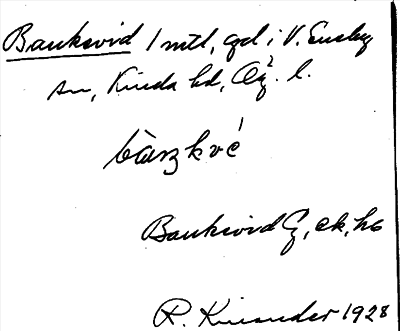 Bankevid 1 mtl, gd i V. Eneby
sn, Kinda hd, Ög. l.
bàŋkvé
Bankevid G, ek, ha
R. Kinander 1928